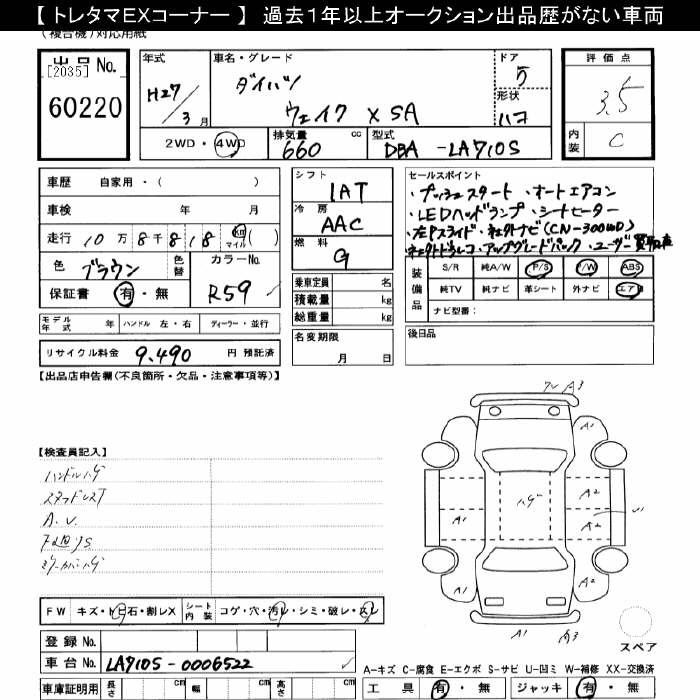 【 トレタマEXコーナー 】 過去1年以上オークション出品歴がない車両
(複合機)対応用紙
出品 No.
[2035]
60220
年式
H27/3月
車名・グレード
ダイハツ
ウェイク X SA
ドア
5
形状
ハコ
評価点
3.5
内装
C
2WD・4WD
排気量 cc
660
型式
DBA - LA710S
車歴 自家用・( )
車検 年 月
走行 10万8千818 Km マイル ( )
色
ブラウン
色替
カラーNo.
R59
保証書 有・無
シフト
1AT
冷房
AAC
燃料
G
乗車定員 名
積載量 kg
総重量 kg
セールスポイント
・プッシュスタート ・オートエアコン
・LEDヘッドランプ ・シートヒーター
・左Pスライド・ネットナビ(CN-300WD)
・アップグレードパック ・ユーザー買取車
装備品
S/R 純A/W P/S P/W ABS
純TV 純ナビ 革シート 外ナビ エアB
ナビ型番:
モデル年式 年 ハンドル 左・右 ディーラー・並行
リサイクル料金 9,490 円 預託済
名変期限
月 日
後日品
【出品店申告欄(不良箇所・欠品・注意事項等)】
【検査員記入】
ハンドルハゲ
スタッドレスT
A.U.
F W キズ・トビ石・割レX
シート内装 コゲ・穴・汚レ・シミ・破レ・スレ
登録 No.
車台 No. LA710S-0006522
車庫証明用 長さ cm 幅 cm 高さ cm
A3
A1
ハゲ
A2
A1
A2
A1
A2
A1
A3
スペア
A-キズ C-腐食 E-エクボ S-サビ U-凹ミ W-補修 XX-交換済
工具 有・無 ジャッキ 有・無